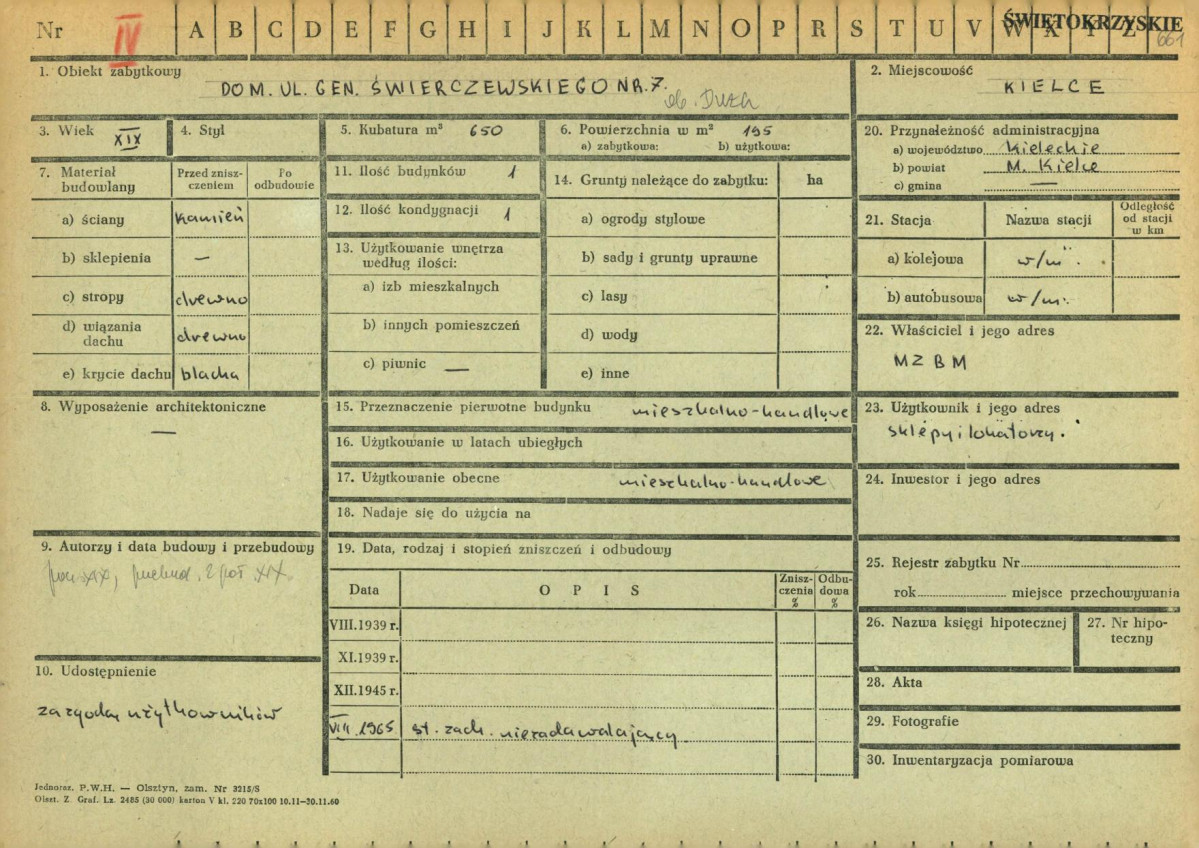 Nr IV A B C D E F G H I J K L M N O P R S T U V W X Y Z ŚWIĘTOKRZYSKIE
661
1. Obiekt zabytkowy
DOM. UL. GEN. ŚWIERCZEWSKIEGO NR. 7.
ob. Duża
2. Miejscowość
KIELCE
3. Wiek XIX
4. Styl
5. Kubatura m³ 650
6. Powierzchnia w m² 195
a) zabytkowa: b) użytkowa:
20. Przynależność administracyjna
a) województwo Kieleckie
b) powiat M. Kielce
c) gmina —
7. Materiał budowlany
Przed znisz-
czeniem
Po
odbudowie
a) ściany kamień
b) sklepienia —
c) stropy drewno
d) wiązania
dachu drewno
e) krycie dachu blacha
11. Ilość budynków 1
12. Ilość kondygnacji 1
13. Użytkowanie wnętrza
według ilości:
a) izb mieszkalnych
b) innych pomieszczeń
c) piwnic —
14. Grunty należące do zabytku: ha
a) ogrody stylowe
b) sady i grunty uprawne
c) lasy
d) wody
e) inne
21. Stacja Nazwa stacji
Odległość
od stacji
w km
a) kolejowa w/m.
b) autobusowa w/m.
22. Właściciel i jego adres
MZBM
8. Wyposażenie architektoniczne
—
15. Przeznaczenie pierwotne budynku mieszkalno-handlowe
16. Użytkowanie w latach ubiegłych
17. Użytkowanie obecne mieszkalno-handlowe
18. Nadaje się do użycia na
23. Użytkownik i jego adres
sklepy i lokatorzy.
24. Inwestor i jego adres
9. Autorzy i data budowy i przebudowy
pocz. XIX, przebud. 2 poł. XIX.
19. Data, rodzaj i stopień zniszczeń i odbudowy
Data OPIS
Znisz-
czenia
%
Odbu-
dowa
%
VIII.1939 r.
XI.1939 r.
XII.1945 r.
VIII.1965 st. zach. niezadawalający
25. Rejestr zabytku Nr
rok miejsce przechowywania
26. Nazwa księgi hipotecznej
27. Nr hipo-
teczny
10. Udostępnienie
za zgodą użytkowników
28. Akta
29. Fotografie
30. Inwentaryzacja pomiarowa
Jednoraz. P.W.H. — Olsztyn, zam. Nr 3215/S
Olszt. Z. Graf. Lz. 2485 (30 000) karton V kl. 220 70x100 10.11—30.11.60